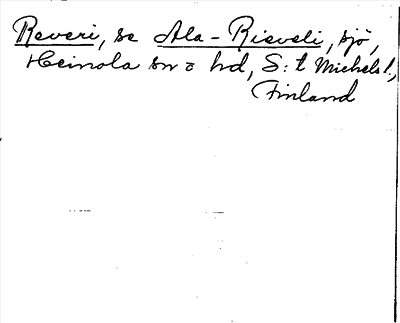 Reveri, se Ala-Rieveli, sjö,
Heinola sn o hd, S:t Michels l.,
Finland